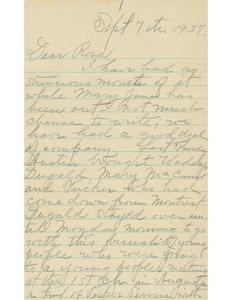 Sept 7th 1937.
Dear Rosa,
I have had a
strenuous month of it
while Mary Jane has
been out. Not much
chance to write; we
have had a good deal
of company. Last
Austin brought Waddy
Dugald, Mary McCam
and Tucker who had
come down from Montreat
Dugald stayed over un
til Monday morning to go
with this bunch of young
people who were going
to a young people's meeting
at the 1st in Augusta
a kind of Vesper Service